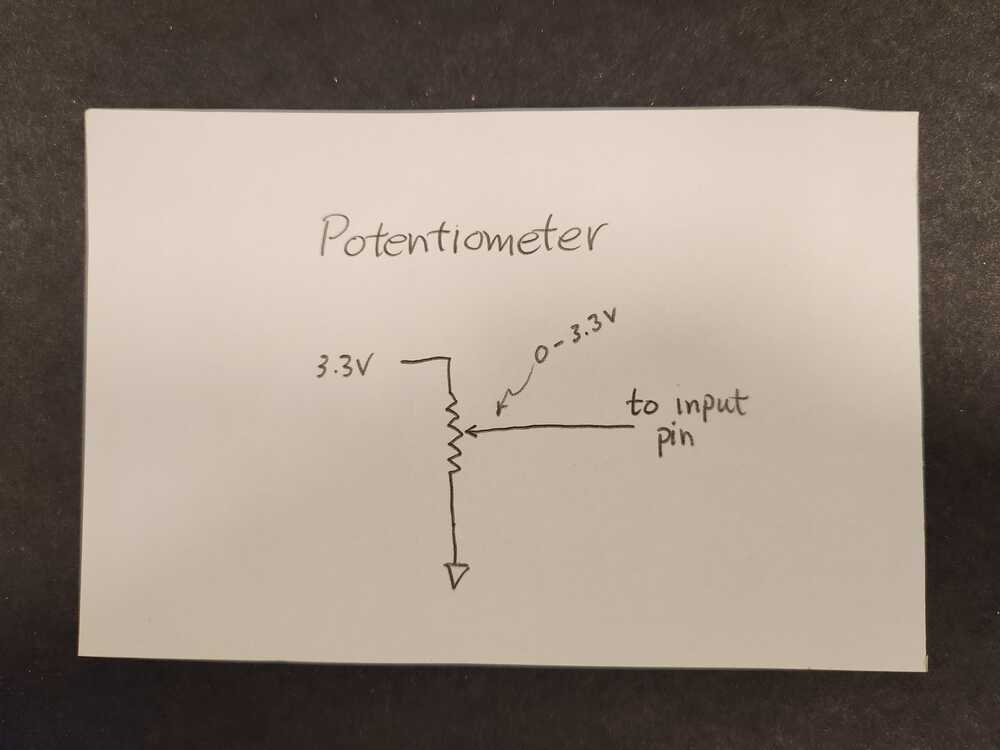 Potentiometer
0-3.3V
3.3V
to input
pin